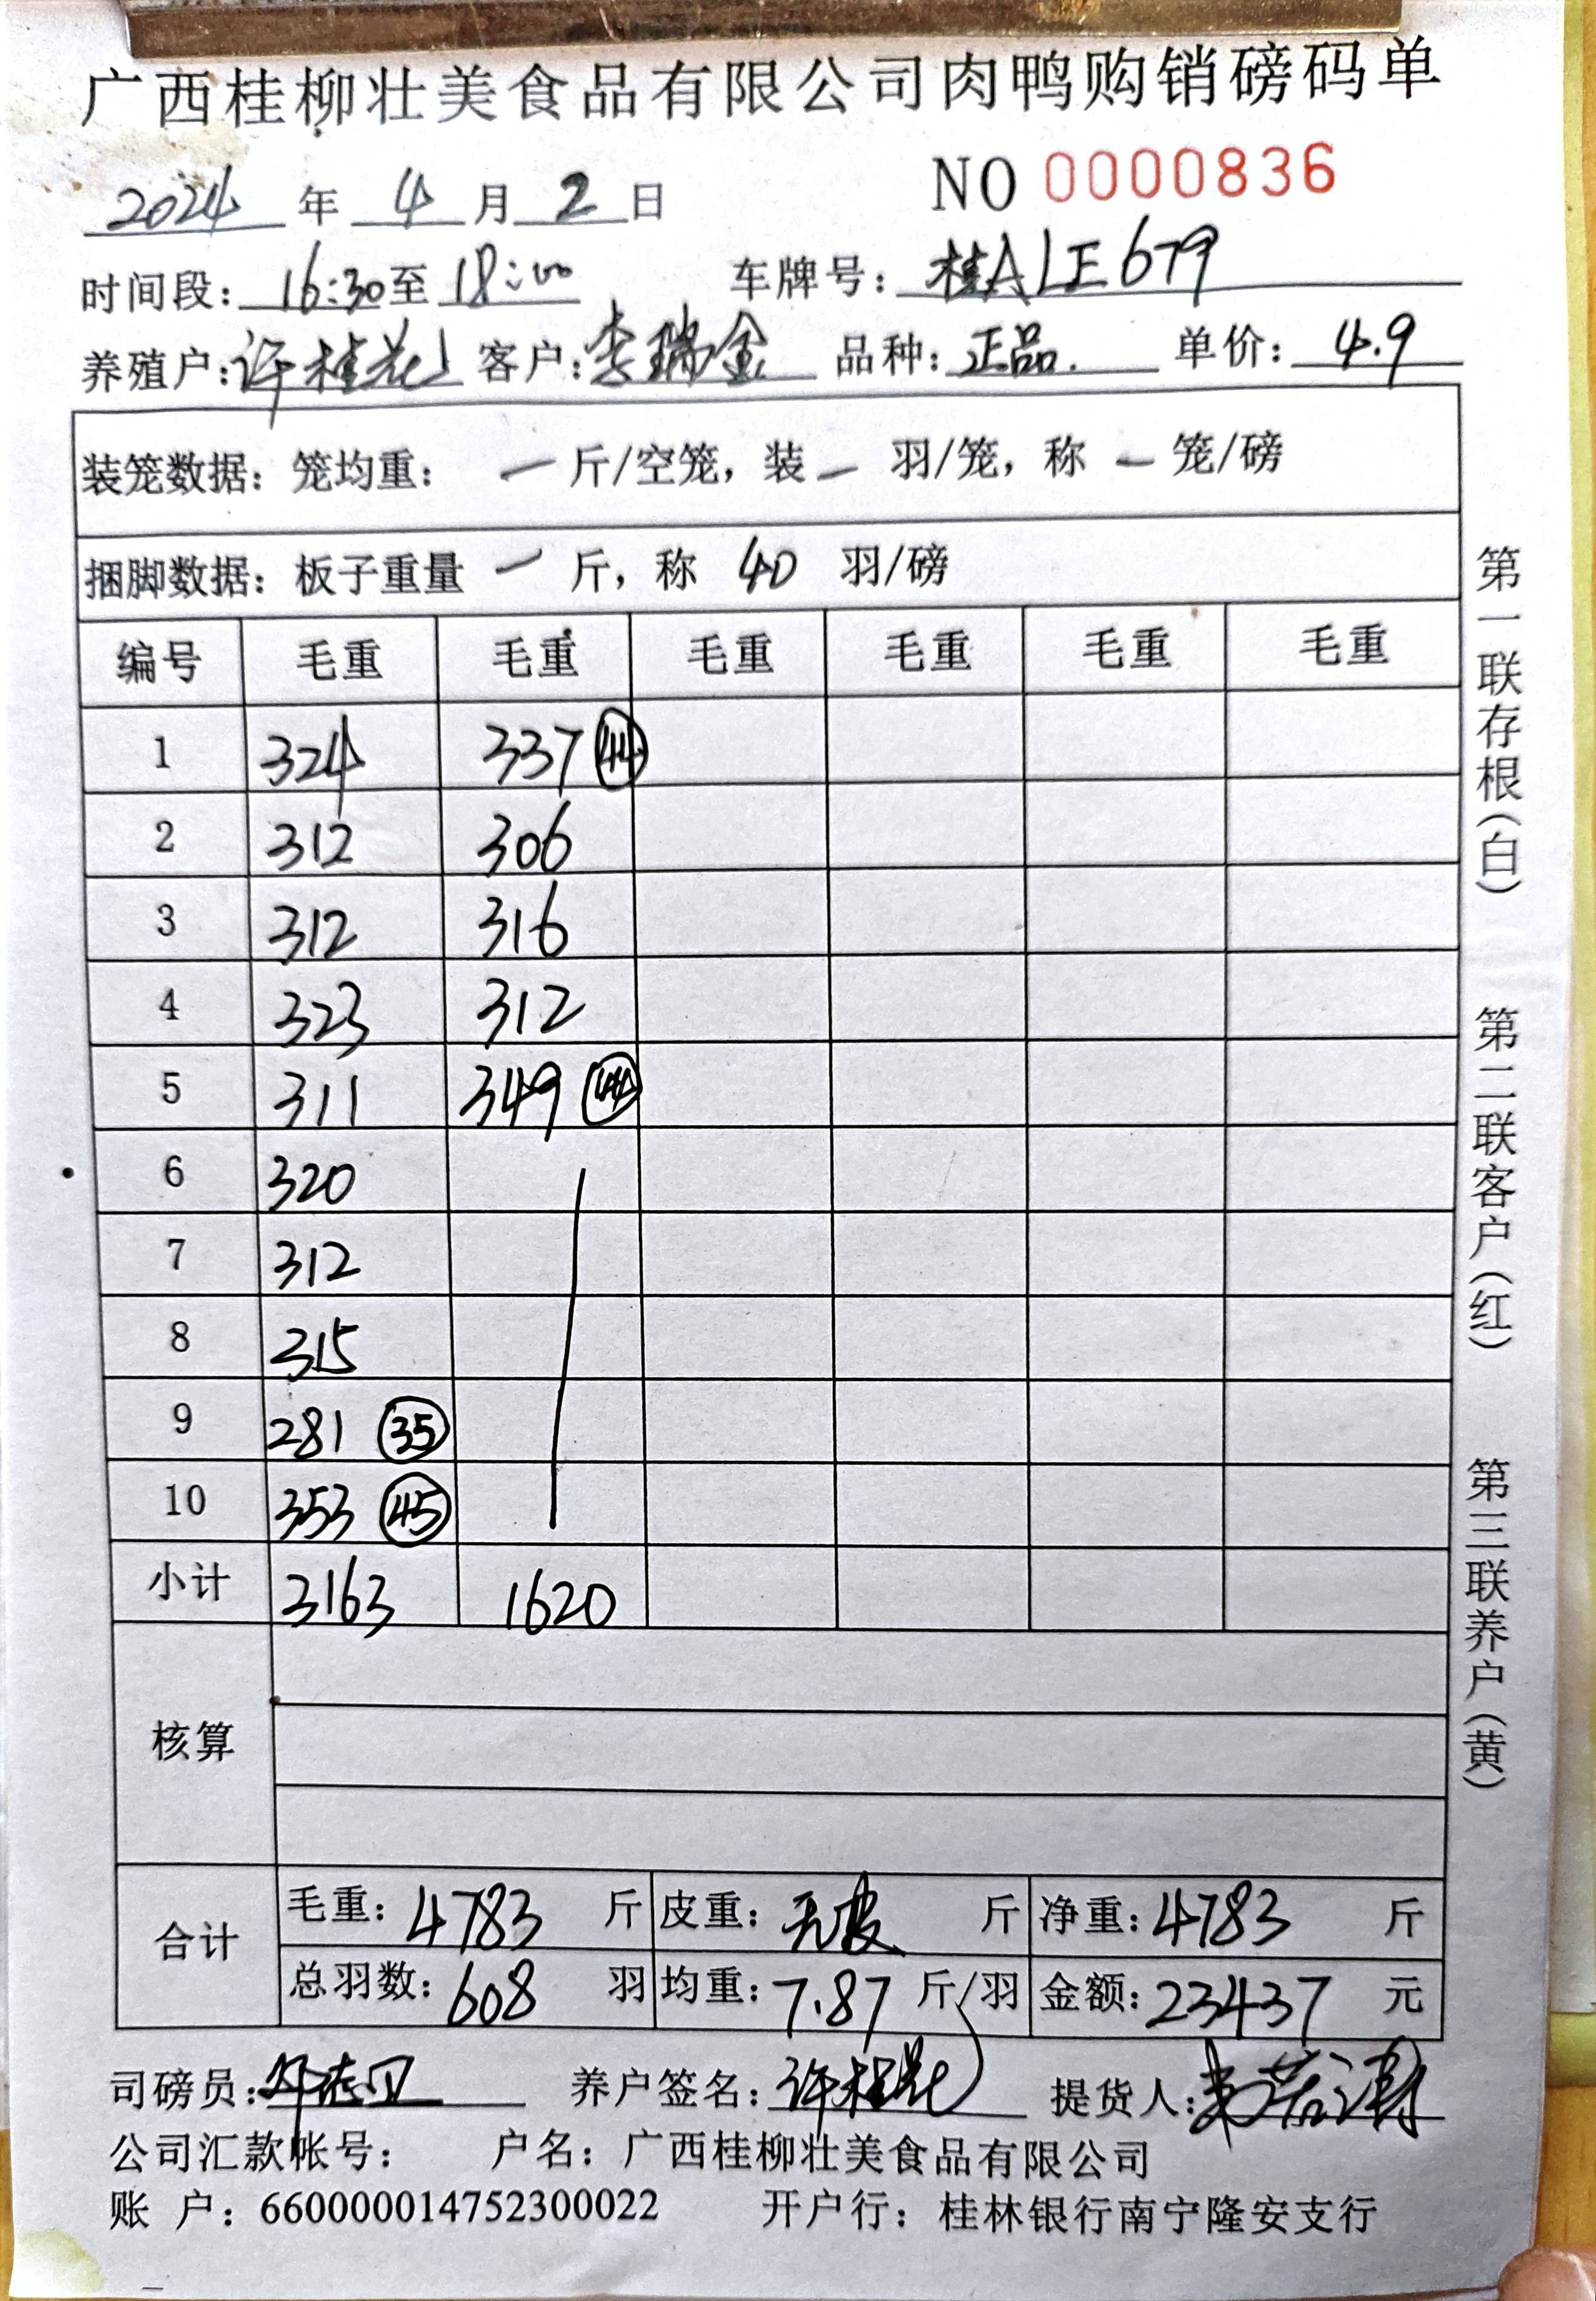 广西桂柳壮美食品有限公司肉鸭购销磅码单
2024 年 4 月 2 日 NO 0000836
时间段: 16:30 至 18:00 车牌号: 桂ALE679
养殖户: 许桂花 客户: 李瑞金 品种: 正品. 单价: 4.9
装笼数据: 笼均重: — 斤/空笼, 装 — 羽/笼, 称 — 笼/磅
捆脚数据: 板子重量 — 斤, 称 40 羽/磅
编号 毛重 毛重 毛重 毛重 毛重 毛重
1 324 337 44
2 312 306
3 312 316
4 323 312
5 311 349 44
6 320
7 312
8 315
9 281 35
10 353 45
小计 3163 1620
核算
合计
毛重: 4783 斤 皮重: 无皮 斤 净重: 4783 斤
总羽数: 608 羽 均重: 7.87 斤/羽 金额: 23437 元
司磅员: 养户签名: 许桂花 提货人:
公司汇款帐号: 户名: 广西桂柳壮美食品有限公司
账 户: 660000014752300022 开户行: 桂林银行南宁隆安支行
第一联存根(白)
第二联客户(红)
第三联养户(黄)